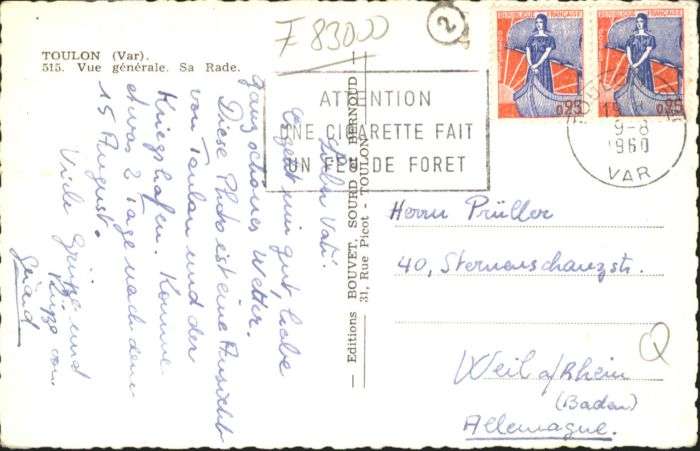 F 83000
2
TOULON (Var).
515. Vue générale. Sa Rade.
REPUBLIQUE FRANÇAISE
0,25
REPUBLIQUE FRANÇAISE
0,25
9-8
1960
VAR
ATTENTION
UNE CIGARETTE FAIT
UN FEU DE FORET
Lieber Vati!
Es geht mir gut, habe
ganz schönes Wetter.
Diese Photo ist eine Ansicht
von Toulon und der
Kriegshafen. Komme
etwa 2 Tage nach dem
15 August.
Viele Grüße und
Küsse von
— Editions BOUVET, SOURD et BERNOUD —
31, Rue Picot - TOULON
Herrn Prüller
40, Sternenschanzstr.
Weil a/Rhein
(Baden)
Allemagne.
Q